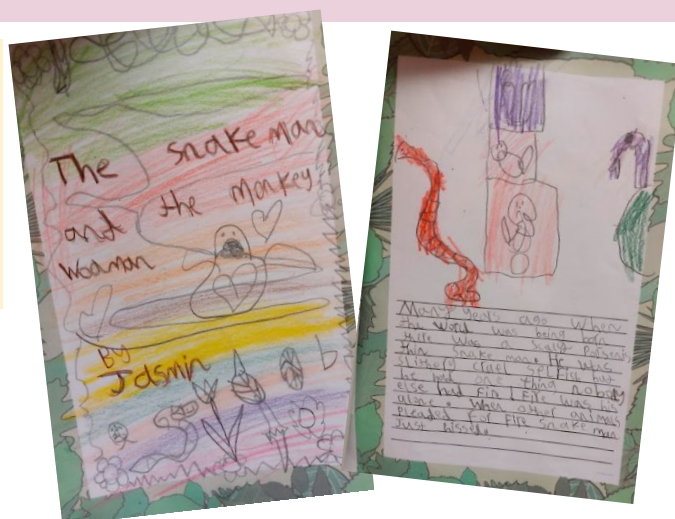 The snake man
and the monkey
woaman
By
Jasmin
Many years ago when
the word was being born
there was a scaly
thin snake man. He was
slithery cruel selfish but
he had one thing nobody
else had Fire! Fire was his
alone. When other animals
pleaded for fire snake man
Just hissed.